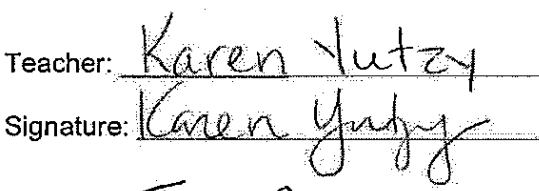 Teacher: Karen Yutzy
Signature: Karen Yutzy